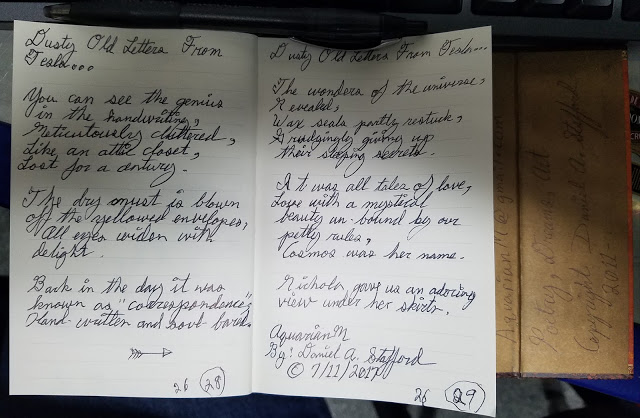 Dusty Old Letters From
Tesla...
You can see the genius
in the handwriting,
Meticulously cluttered,
Like an attic closet,
Lost for a century.
The dry must is blown
off the yellowed envelopes,
All eyes widen with
delight.
Back in the day it was
known as "correspondence",
Hand-written and soul-bared.
26 28
Dusty Old Letters From Tesla...
The wonders of the universe,
Revealed,
Wax seals partly restuck,
Grudgingly giving up
their sleeping secrets.
It was all tales of love,
Love with a mystical
beauty un-bound by our
petty rules,
Cosmos was her name.
Nichola, gave us an adoring
view under her skirts.
AquarianM
By: Daniel A. Stafford
© 7/11/2017
26 29
Poetry
Art
Copyright Daniel A. Stafford
2017-